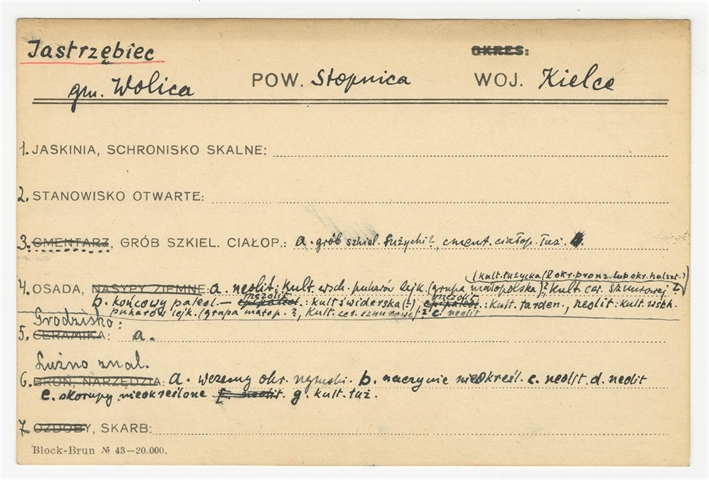 Jastrzębiec OKRES:
gm. Wolica POW. Stopnica WOJ. Kielce
1. JASKINIA, SCHRONISKO SKALNE:
2. STANOWISKO OTWARTE:
3. CMENTARZ, GRÓB SZKIEL. CIAŁOP.: a. grób szkiel. łużycki?, cment. ciałop. łuż.
(kult. łużycka (V okr. bronz. lub okr. halszt.)
4. OSADA, NASYPY ZIEMNE: a. neolit: kult. wsch. pucharów lejk. (grupa małopolska)?, kult. cer. sznurowej?
b. końcowy paleol. — mezolit: kult. świderska (?) mezolit: kult. tarden., neolit: kult. wsch.
Grodzisko: pucharów lejk. (grupa małop. ?, kult. cer. sznurowej)? c. neolit
5. CERAMIKA: a.
Luźno znal.
6. BROŃ, NARZĘDZIA: a. wczesny okr. rzymski. b. naczynie nieokreśl. c. neolit d. neolit
e. skorupy nieokreślone f. neolit g. kult. łuż.
7. OZDOBY, SKARB:
Block-Brun № 43—20.000.